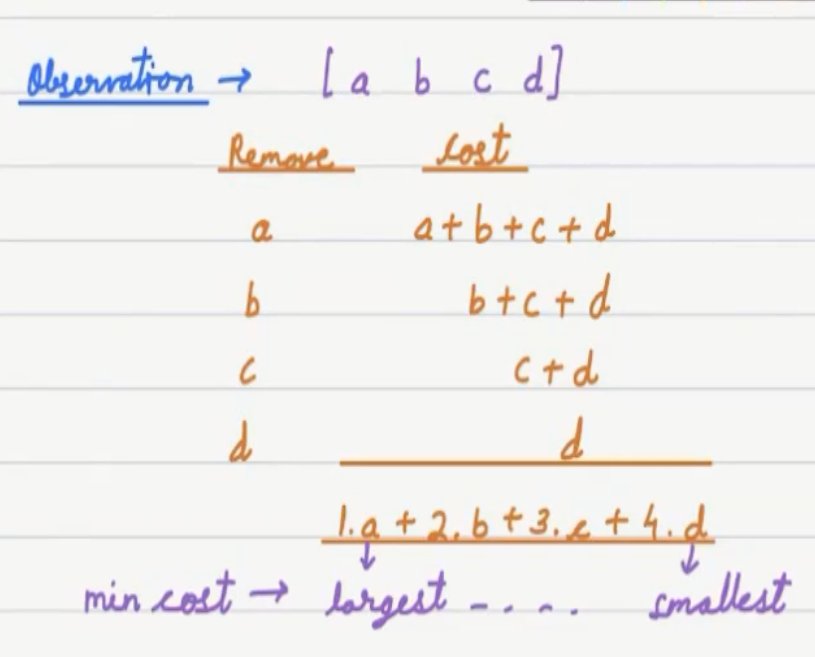 Observation → [ a b c d ]
Remove Cost
a a + b + c + d
b b + c + d
c c + d
d d
1.a + 2.b + 3.c + 4.d
min cost → largest - . - . smallest